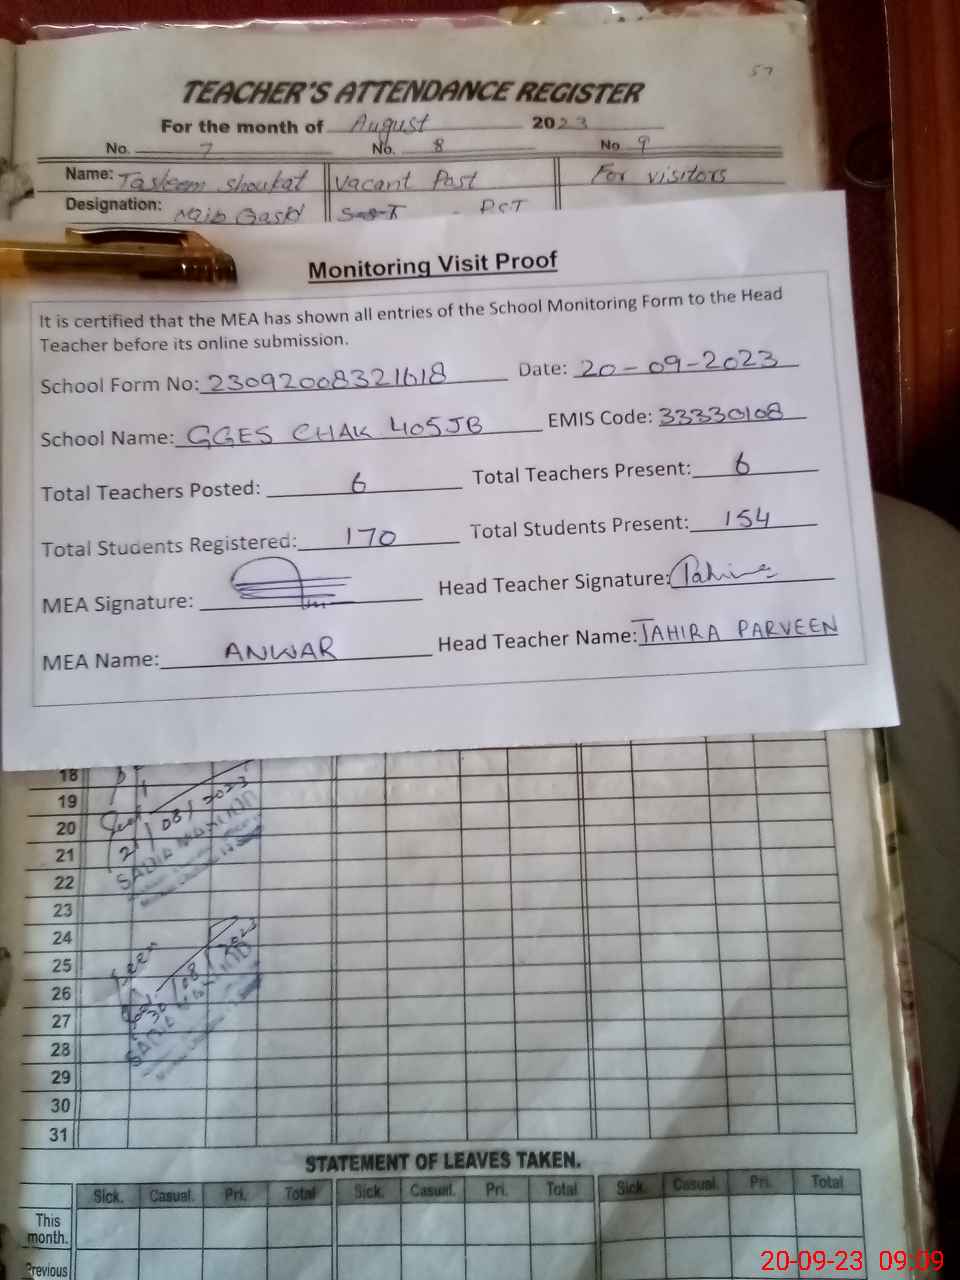 57
TEACHER'S ATTENDANCE REGISTER
For the month of August 2023
No. 7 No. 8 No 9
Name: Tasleem Shoukat Vacant Post For visitors
Designation: PST
Monitoring Visit Proof
It is certified that the MEA has shown all entries of the School Monitoring Form to the Head
Teacher before its online submission.
School Form No: 23092008321618 Date: 20-09-2023
School Name: GGES CHAK 405JB EMIS Code: 33330108
Total Teachers Posted: 6 Total Teachers Present: 6
Total Students Registered: 170 Total Students Present: 154
MEA Signature: Head Teacher Signature: Tahira
MEA Name: ANWAR Head Teacher Name: TAHIRA PARVEEN
18
19
20
21 21/08/2023
22
23
24
25 Seen
26 30/08/2023
27
28
29
30
31
STATEMENT OF LEAVES TAKEN.
Sick. Casual. Pri. Total Sick. Casual. Pri. Total Sick. Casual. Pri. Total
This
month.
Previous
20-09-23 09:09